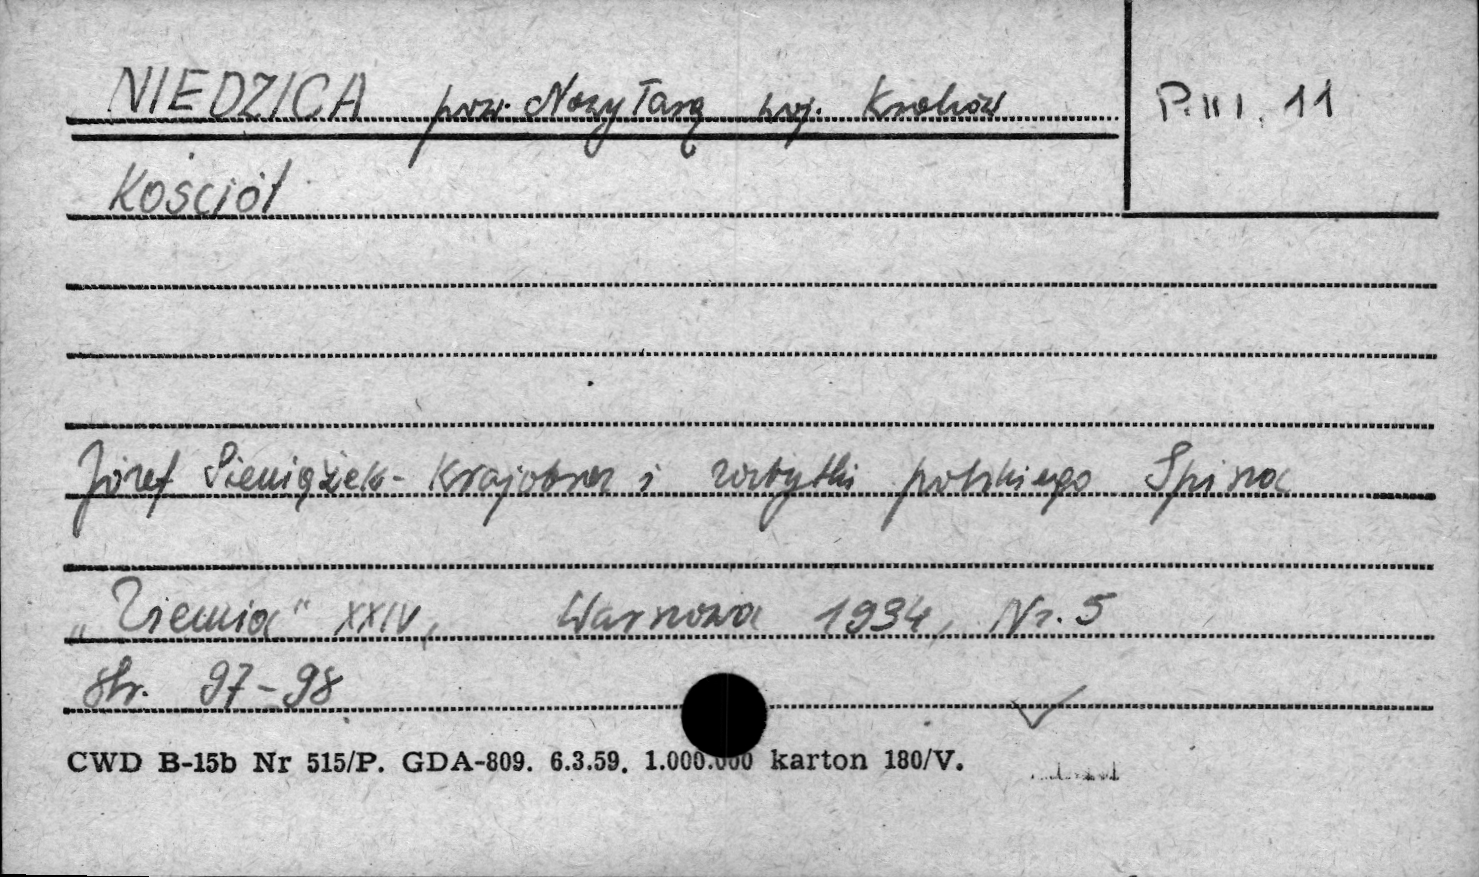 NIEDZICA pow. Nowy Targ woj. Kraków
P. III. 11
Kościół
Józef Sieniążek - Krajobraz i zabytki polskiego Spisza
„Ziemia" XXIV, Warszawa 1934, Nr. 5
str. 97-98
CWD B-15b Nr 515/P. GDA-809. 6.3.59. 1.000.000 karton 180/V.